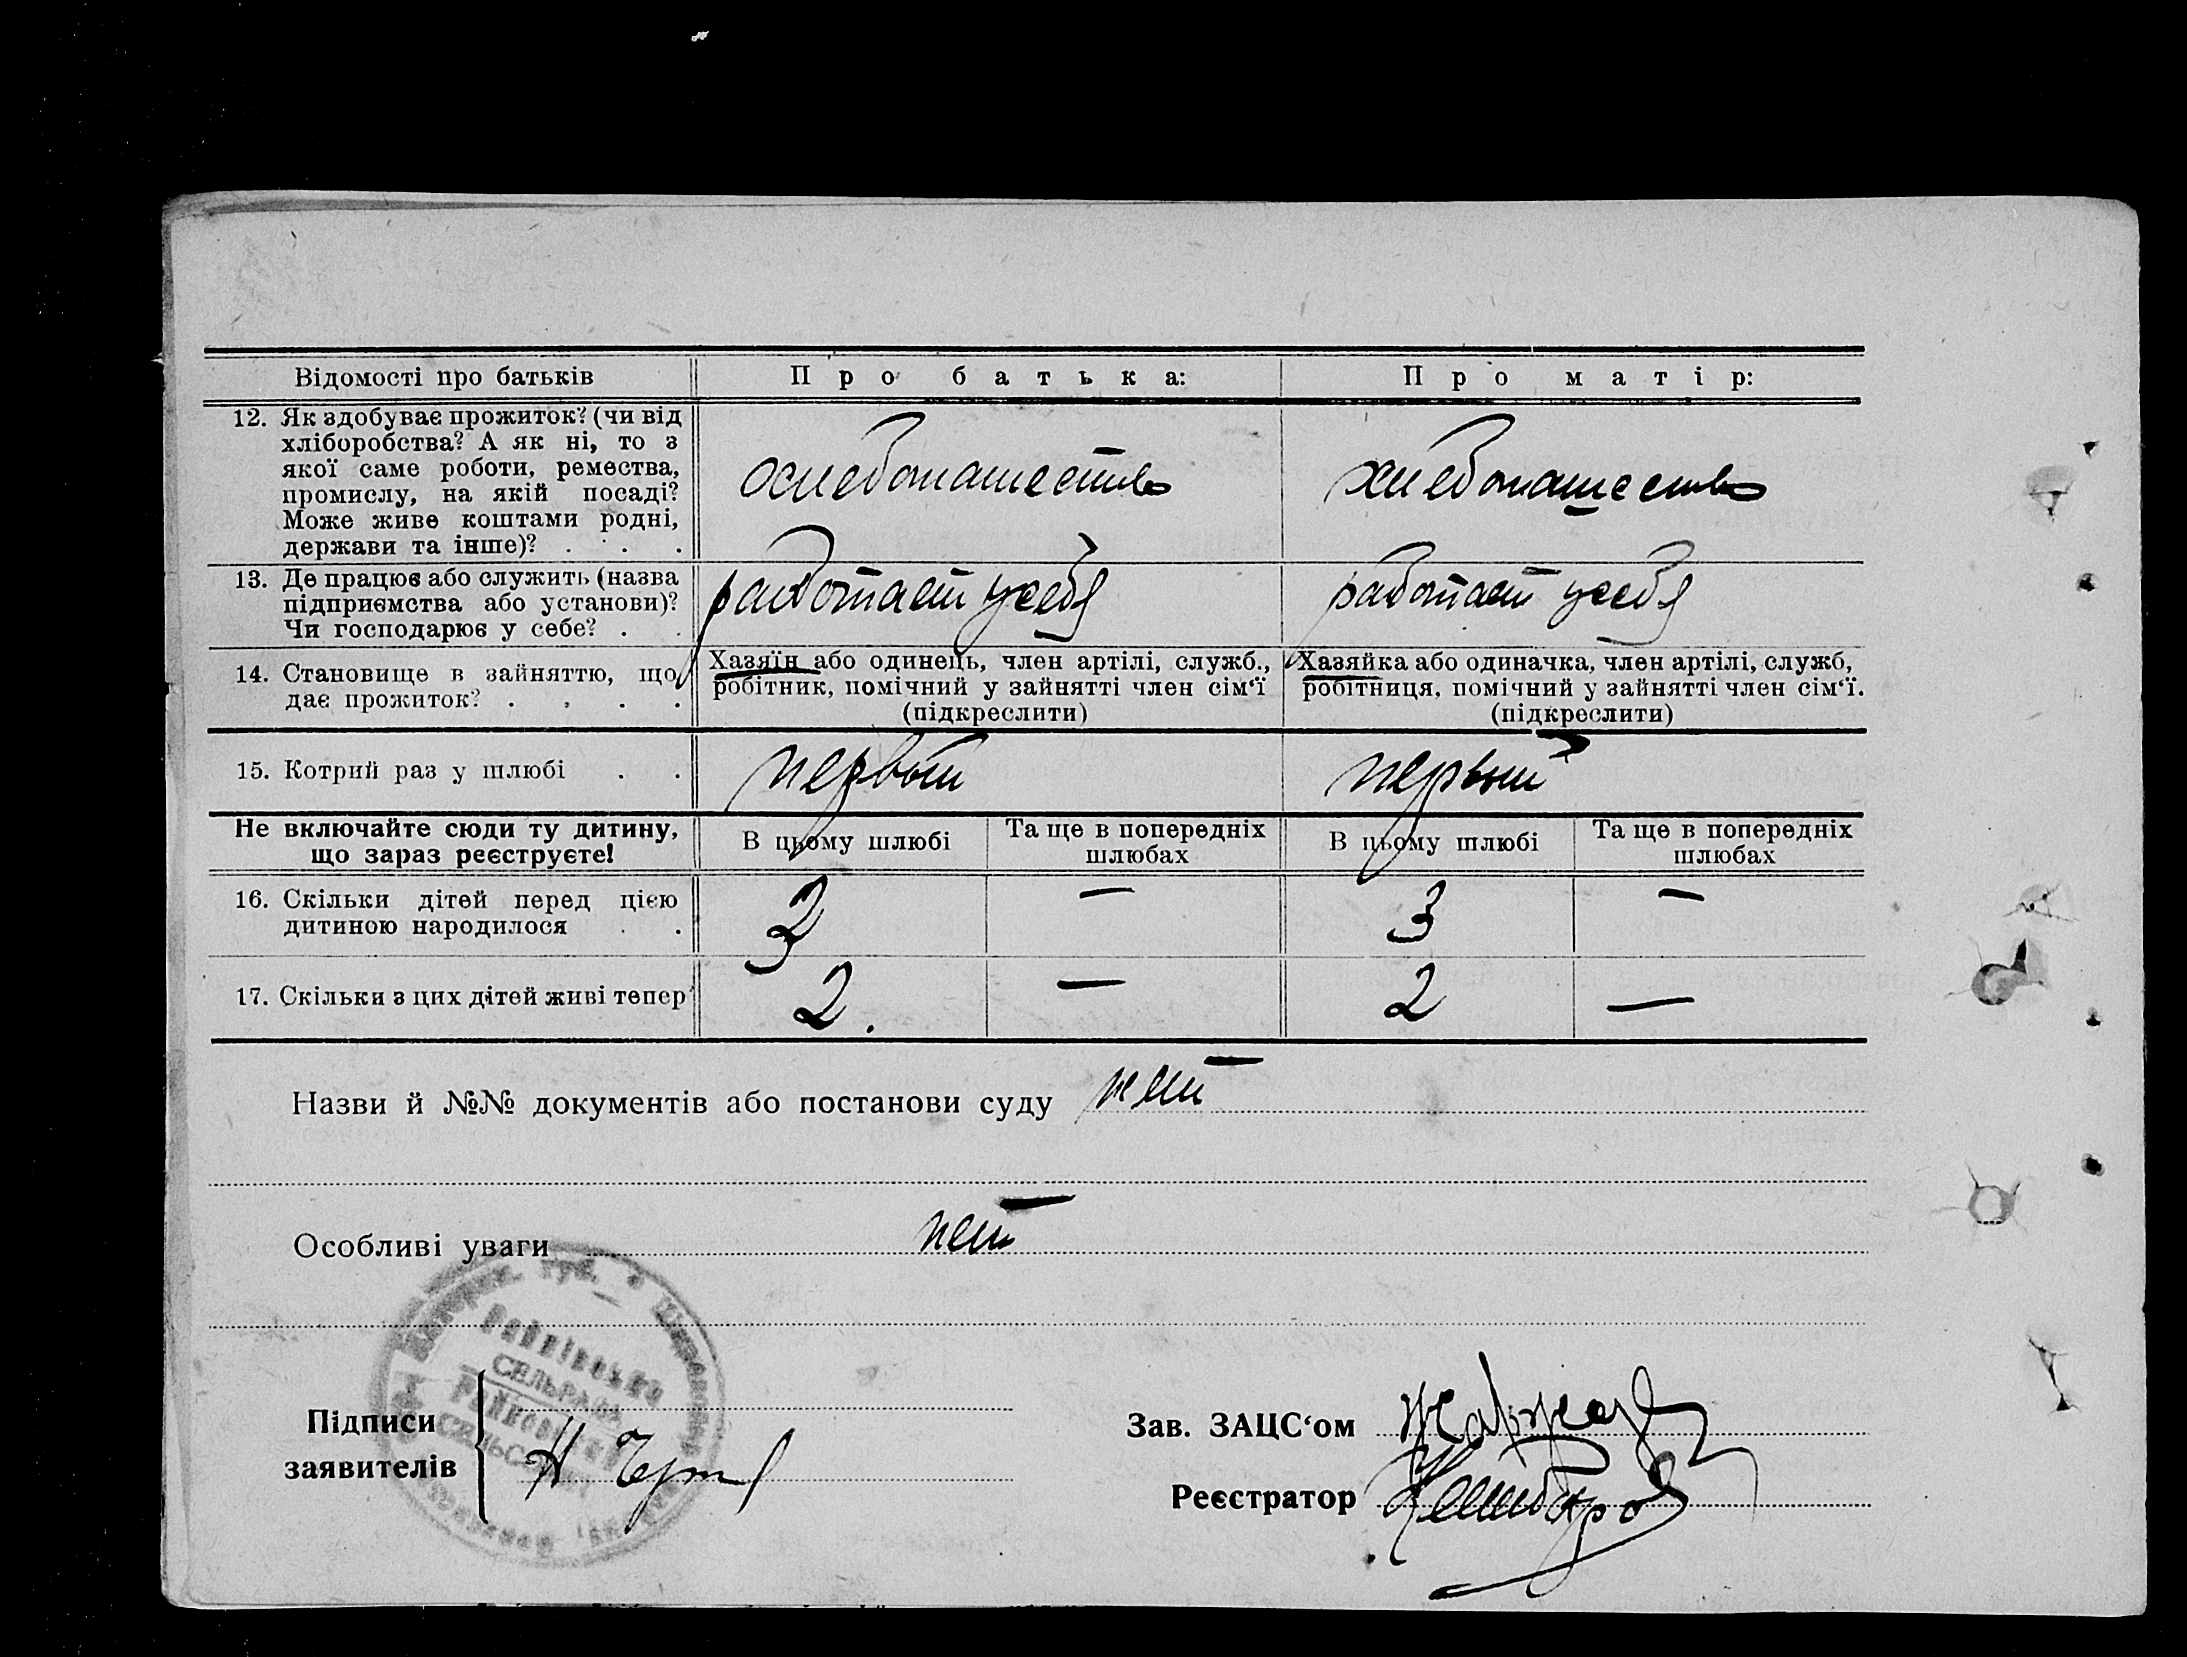 Відомості про батьків Про батька: Про матір:
12. Як здобуває прожиток? (чи від
хліборобства? А як ні, то з
якої саме роботи, ремества,
промислу, на якій посаді?
Може живе коштами родні,
держави та інше)? . . .
хлебопашество хлебопашество
13. Де працює або служить (назва
підприємства або установи)?
Чи господарює у себе? . .
работает у себя работает у себя
14. Становище в зайняттю, що
дає прожиток? . . . .
Хазяїн або одинець, член артілі, служб.,
робітник, помічний у зайнятті член сім'ї
(підкреслити)
Хазяйка або одиначка, член артілі, служб,
робітниця, помічний у зайнятті член сім'ї.
(підкреслити)
15. Котрий раз у шлюбі . . первый первый
Не включайте сюди ту дитину,
що зараз реєструєте!
В цьому шлюбі
Та ще в попередніх
шлюбах
В цьому шлюбі
Та ще в попередніх
шлюбах
16. Скільки дітей перед цією
дитиною народилося . .
3 — 3 —
17. Скільки з цих дітей живі тепер 2. — 2 —
Назви й №№ документів або постанови суду нет
Особливі уваги нет
Підписи
заявителів
Зав. ЗАЦС'ом
Реєстратор
губ.
СЕЛЬРАДА